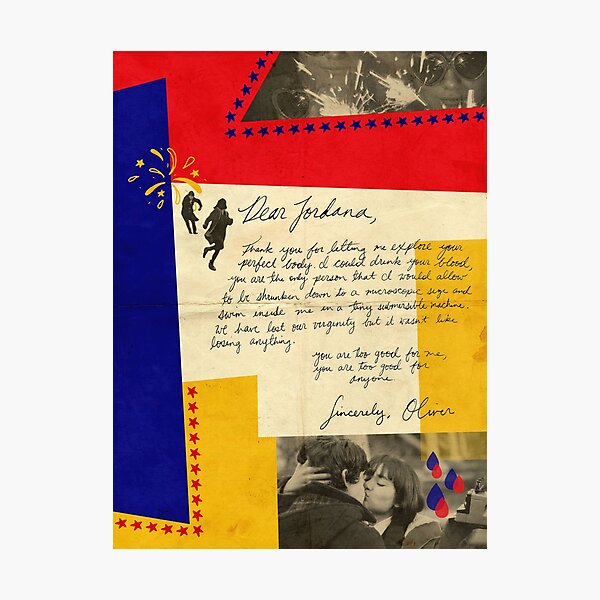 Dear Jordana,
Thank you for letting me explore your
perfect body. I could drink your blood,
you are the only person that I would allow
to be shrunken down to a microscopic size and
swim inside me in a tiny submersible machine.
We have lost our virginity but it wasn't like
losing anything.
you are too good for me,
you are too good for
anyone.
Sincerely, Oliver